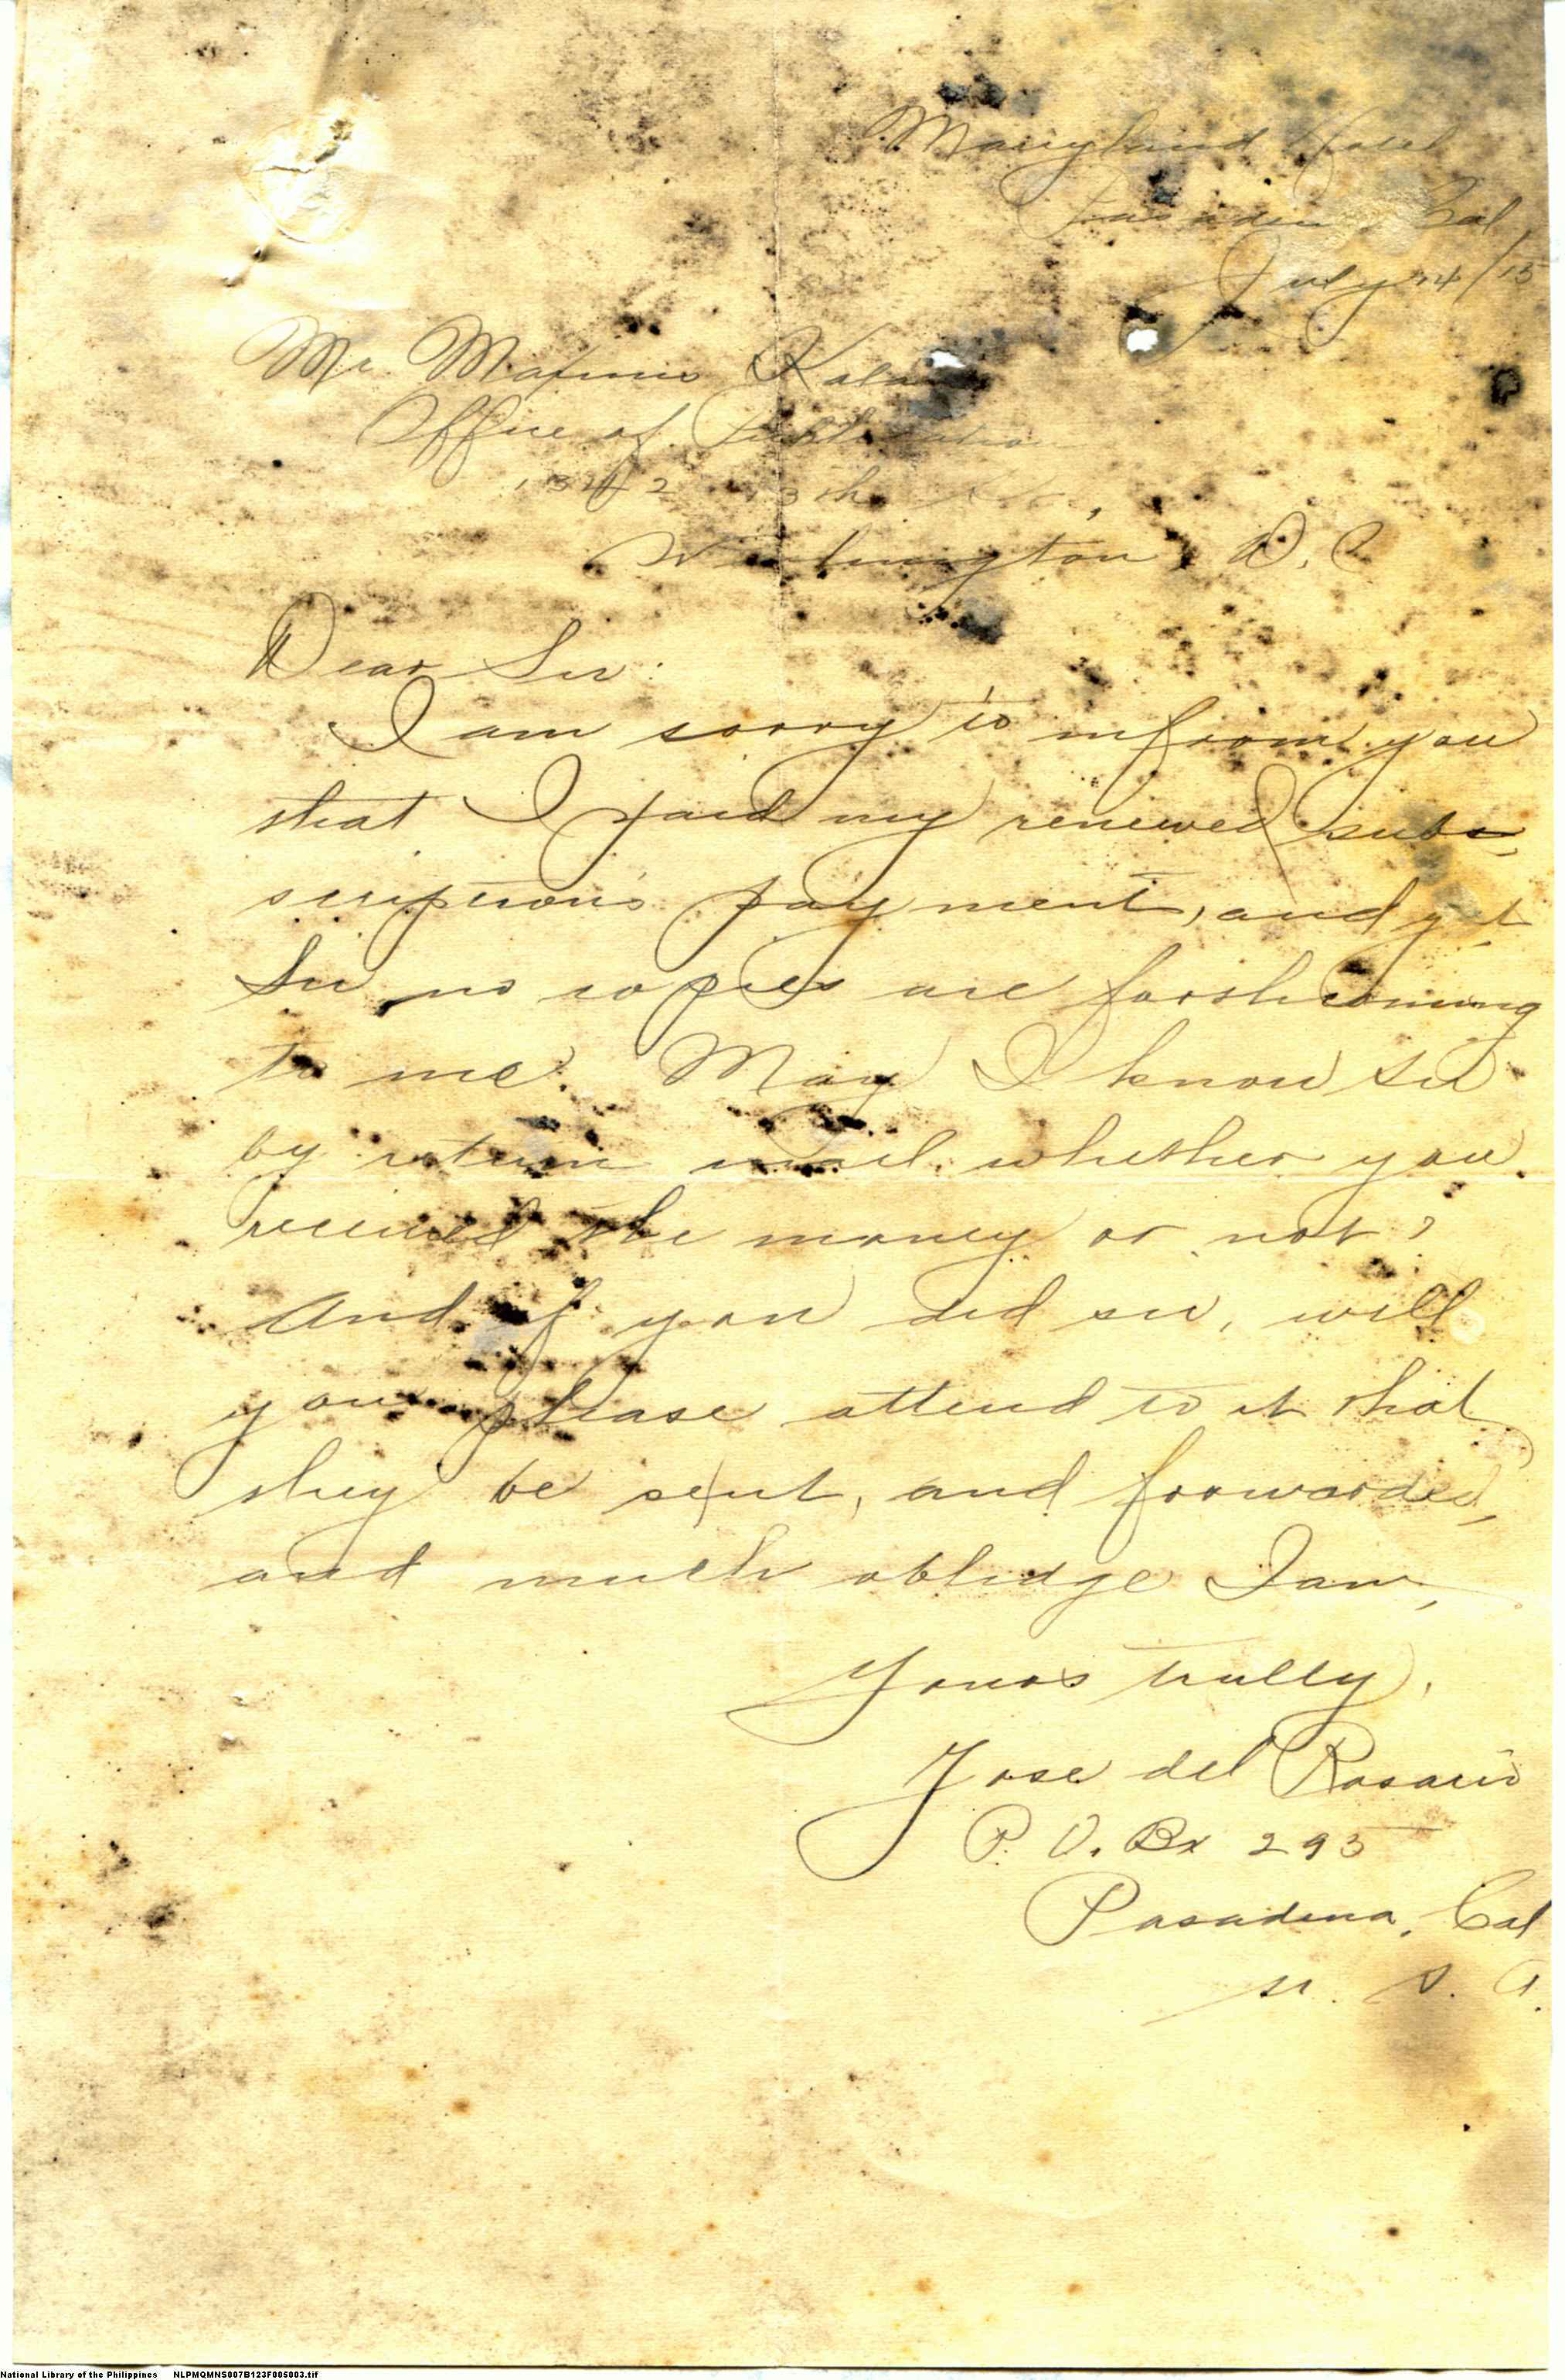 Maryland Hotel
Pasadena, Cal,
July 24/15
Mr. Maximo Kalaw
Office of Publication
Washington, D.C
Dear Sir:
I am sorry to infrom you
that I paid my renewed subs,
scription's payment, and yet
Sir no copies are forshcoming
to me. May I know sir
by return mail, whether you
received the money or not?
And if you did sir, will
you please attend to it that
they be sent, and forwarded,
and much oblidge I am,
Yours trully,
Jose del Rosario
P. O. Bx 295
Pasadena, Cal
U. S. A.
National Library of the Philippines NLPMQMNS007B123F005003.tif